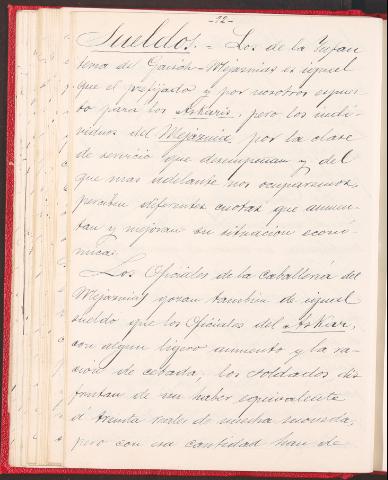 -12-
Sueldos.- Los de la Infan
teria de Gaisch-Mejasnias es igual
que el prefijado y por nosotros espues-
to para los Askaris, pero los indi-
viduos del Mejasnia, por la clase
de servicio que desempeñan y del
que mas adelante nos ocuparemos,
perciben diferentes cuotas que aumen-
tan y mejoran su situacion econó-
mica.
Los Oficiales de la Caballeria del
Mejasnias gozan tambien de igual
sueldo que los Oficiales del Askar,
con algun ligero aumento y la ra-
cion de cebada; los soldados dis
frutan de un haber equivalente
á treinta reales de nuestra moneda,
pero con esa cantidad han de